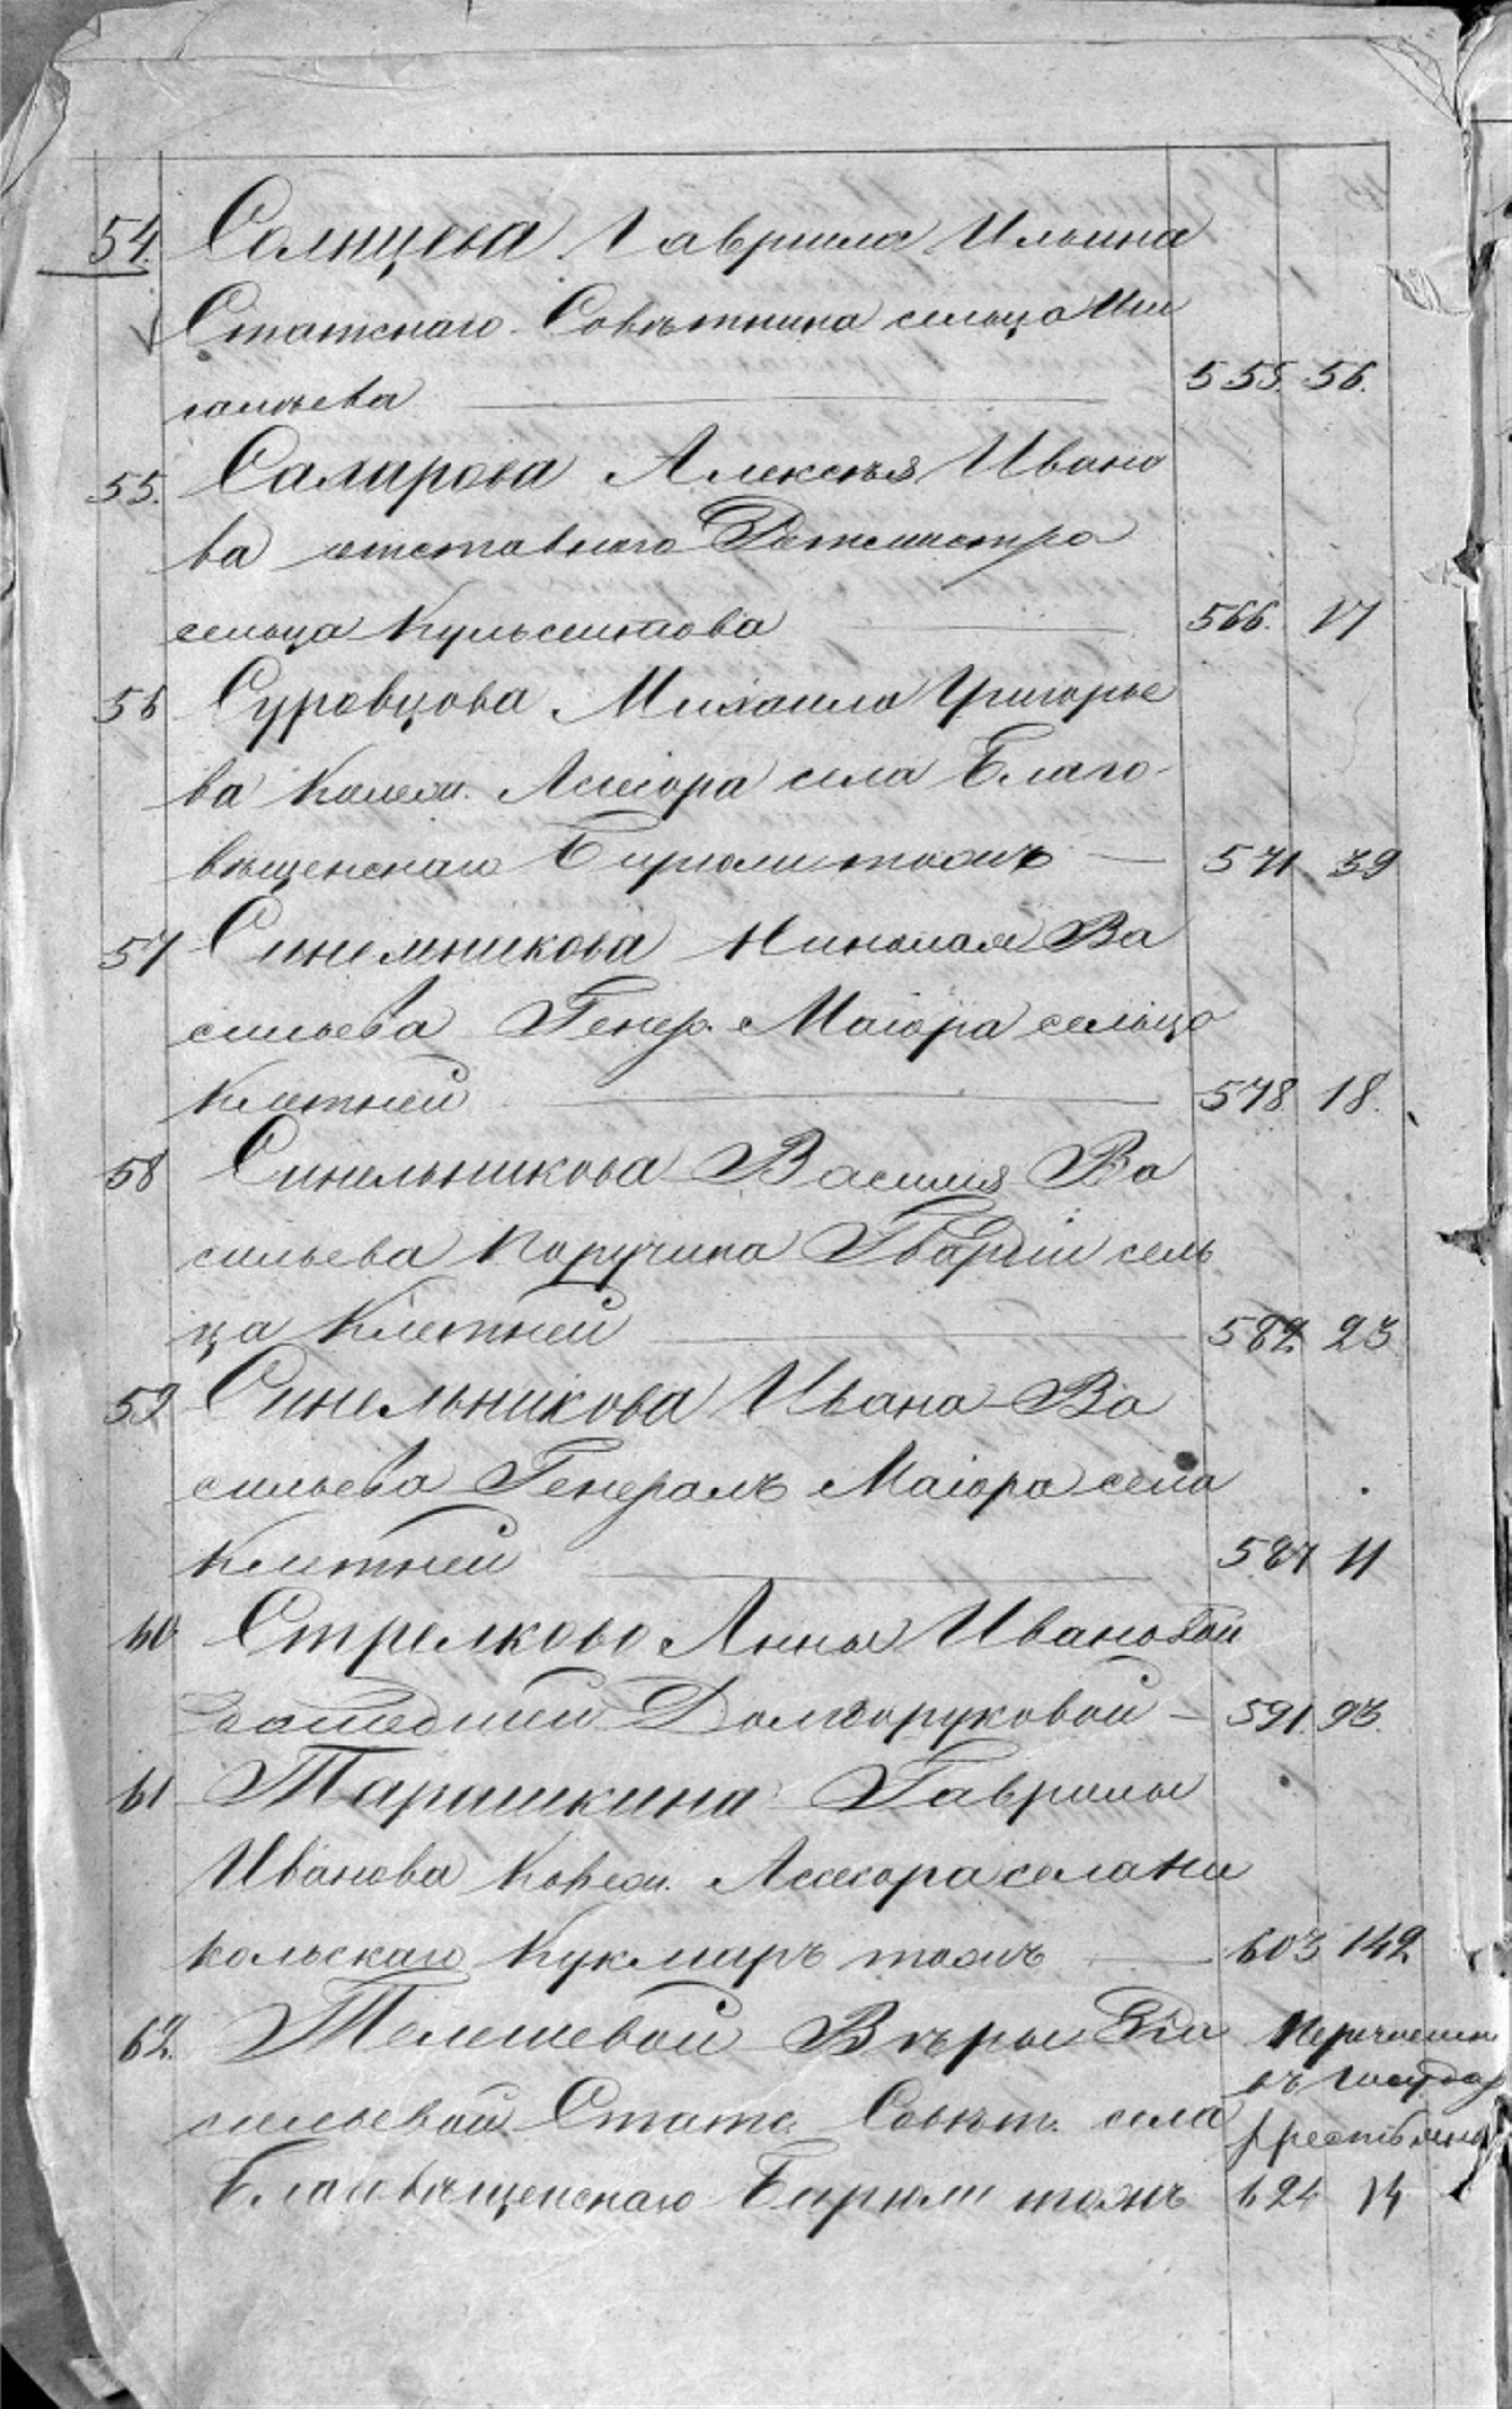 54. Солнцева Гаврила Ильина
Статскаго Совѣтника сельца
555. 56.
55. Сахарова Алексѣя Ивано
ва отставнаго Ротмистра
сельца 566. 17
56 Суровцова Михаила Григорье
ва Колеж. Ассесора села Благо-
вѣщенскаго Бирюли тожъ — 571 39
57 Синельникова Николая Ва
сильева Генер. Маіора сельца
Клетней 578 18.
58 Синельникова Василия Ва
сильева Поручика Гвардіи сель
ца Клетней 582. 23
59 Синельникова Ивана Ва
сильева Генералъ Маіора села
Клетней 587 11
60 Стрелково Анны Ивановой
Долгоруковой — 591. 93.
61 Тарашкина Гаврилы
Иванова Колеж. Ассесора села Ни
кольскаго Кукмаръ тожъ 603 142
62. Телешевой Вѣры Ва
сильевой Статс. Совѣт. села
Благовѣщенскаго Бирюли тожъ 624 14
въ Государ